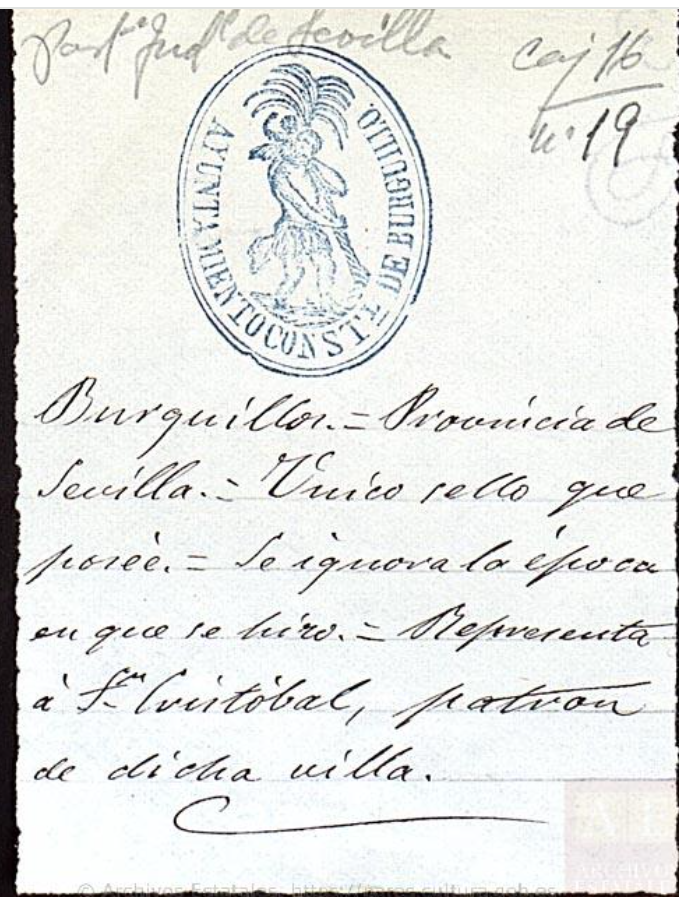 Part.º Jud.l de Sevilla
caj 16
nº 19
AYUNTAMIENTO CONST.L DE BURGUILLO.
Burguillos.= Provincia de
Sevilla.= Unico sello que
posée.= Se ignora la época
en que se hizo.= Representa
á S.n Cristóbal, patron
de dicha villa.
© Archivos Estatales, https://pares.cultura.gob.es